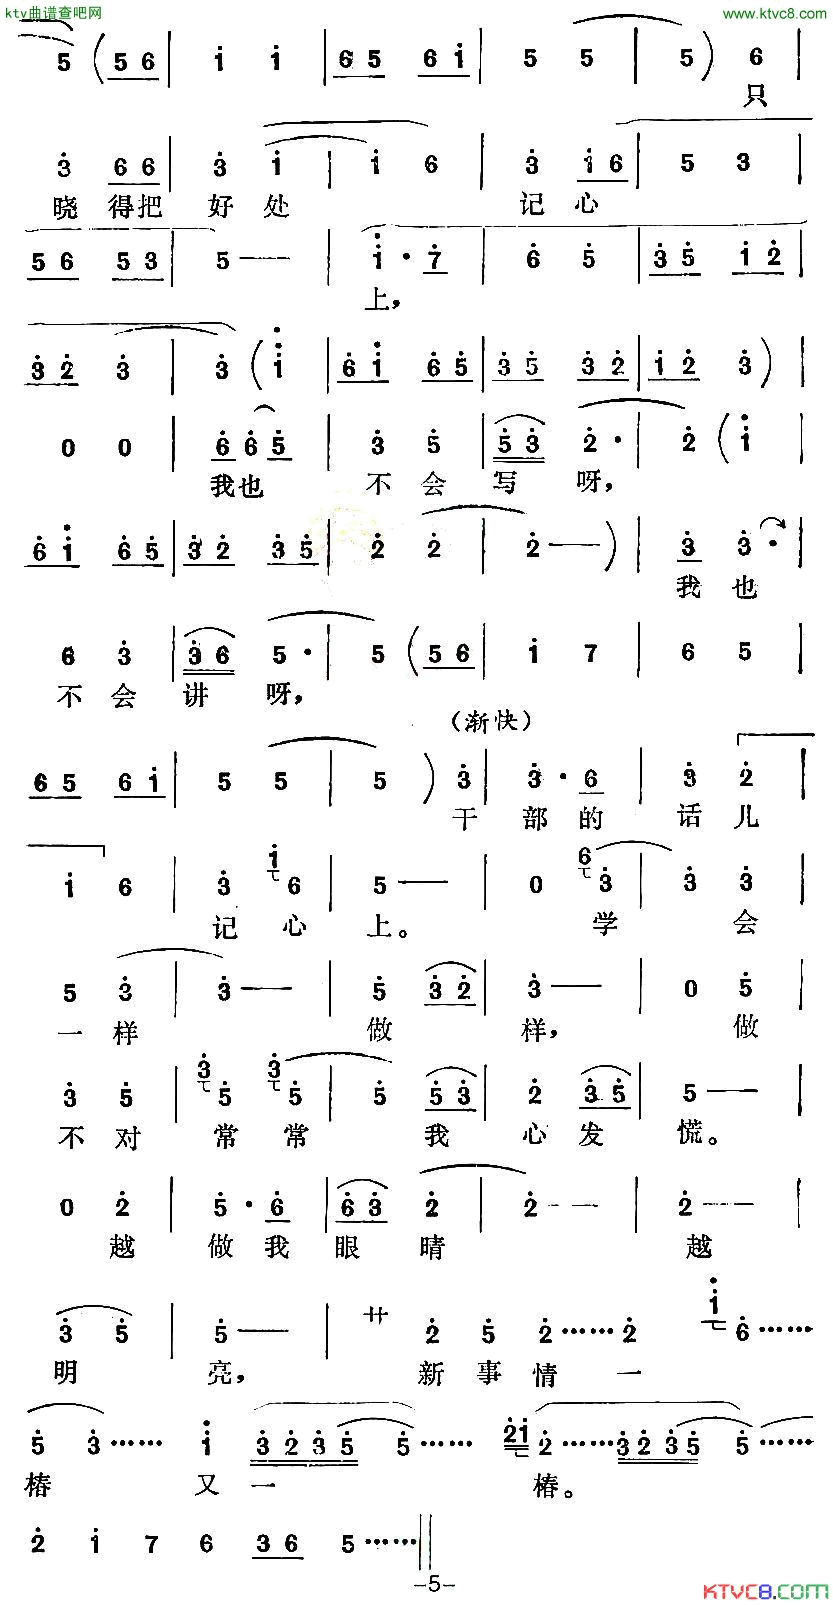 ktv曲谱查吧网 www.ktvc8.com
5 (5 6 | 1 1 | 6 5 6 1 | 5 5 | 5) 6 |
只
3 6 6 | 3 1 | 1 6 | 3 1 6 | 5 3 |
晓 得把 好 处 记 心
5 6 5 3 | 5 — | 1 · 7 | 6 5 | 3 5 1 2 |
上,
3 2 3 | 3 (1 | 6 1 6 5 | 3 5 3 2 | 1 2 3) |
0 0 | 6 6 5 | 3 5 | 5 3 2 · | 2 (1 |
我也 不 会 写 呀,
6 1 6 5 | 3 2 3 5 | 2 2 | 2 —) | 3 3 · |
我 也
6 3 | 3 6 5 · | 5 (5 6 | 1 7 | 6 5 |
不 会 讲 呀,
(渐快)
6 5 6 1 | 5 5 | 5) 3 | 3 · 6 | 3 2 |
干 部 的 话 儿
1 6 | 3 1 6 | 5 — | 0 6 3 | 3 3 |
记 心 上。 学 会
5 3 | 3 — | 5 3 2 | 3 — | 0 5 |
一 样 做 样, 做
3 5 | 3 5 3 5 | 5 5 3 | 2 3 5 | 5 — |
不 对 常 常 我 心 发 慌。
0 2 | 5 · 6 | 6 3 2 | 2 — | 2 — |
越 做 我 眼 睛 越
3 5 | 5 — | 艹 2 5 2 …… 2 1 6 ……
明 亮, 新 事 情 一
5 3 …… 1 3 2 3 5 5 …… 2 1 2 …… 3 2 3 5 5 ……
椿 又 一 椿。
2 1 7 6 3 6 5 …… ‖
-5-
KTVC8.COM